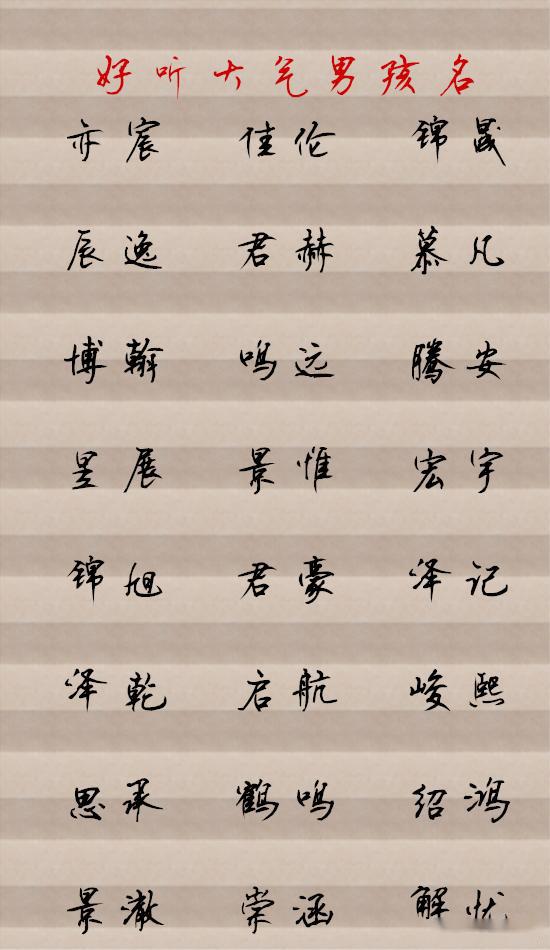 好听大气男孩名
亦宸 佳伦 锦晟
辰逸 君赫 慕凡
博翰 鸣远 腾安
昱展 景惟 宏宇
锦旭 君豪 泽记
泽乾 启航 峻熙
思承 鹤鸣 绍鸿
景澈 崇涵 解忧